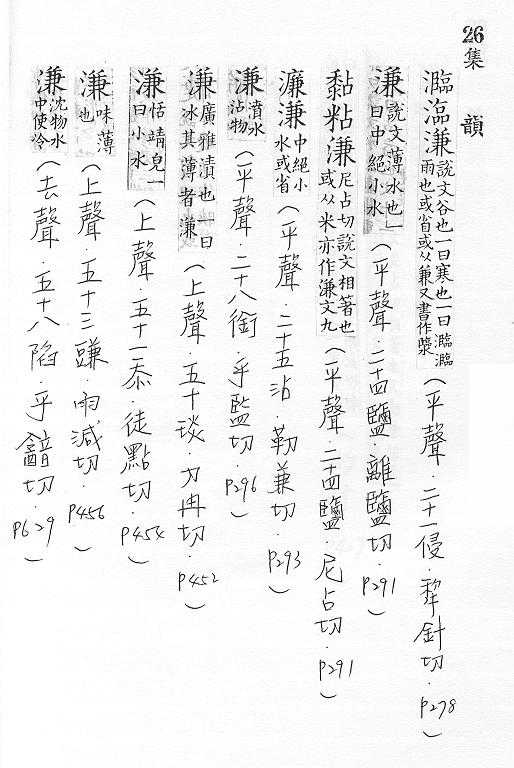 26
集韻
瀶㵉溓 說文谷也一曰寒也一曰瀶瀶雨也或省或从兼又書作𤁋 (平聲．二十一侵．犂針切．P278)
溓 說文薄水也一曰中絕小水 (平聲．二十四鹽．離鹽切．P291)
黏粘溓 尼占切說文相箸也或从米亦作溓文九 (平聲．二十四鹽．尼占切．P291)
濂溓 中絕小水或省 (平聲．二十五沾．勒兼切．P293)
溓 漬水沾物 (平聲．二十八銜．乎監切．P296)
溓 廣雅漬也一曰冰其薄者溓 (上聲．五十琰．力冉切．P452)
溓 恬靖皃一曰小水 (上聲．五十一忝．徒點切．P454)
溓 味薄也 (上聲．五十三豏．兩減切．P456)
溓 沈物水中使冷 (去聲．五十八陷．乎韽切．P629)